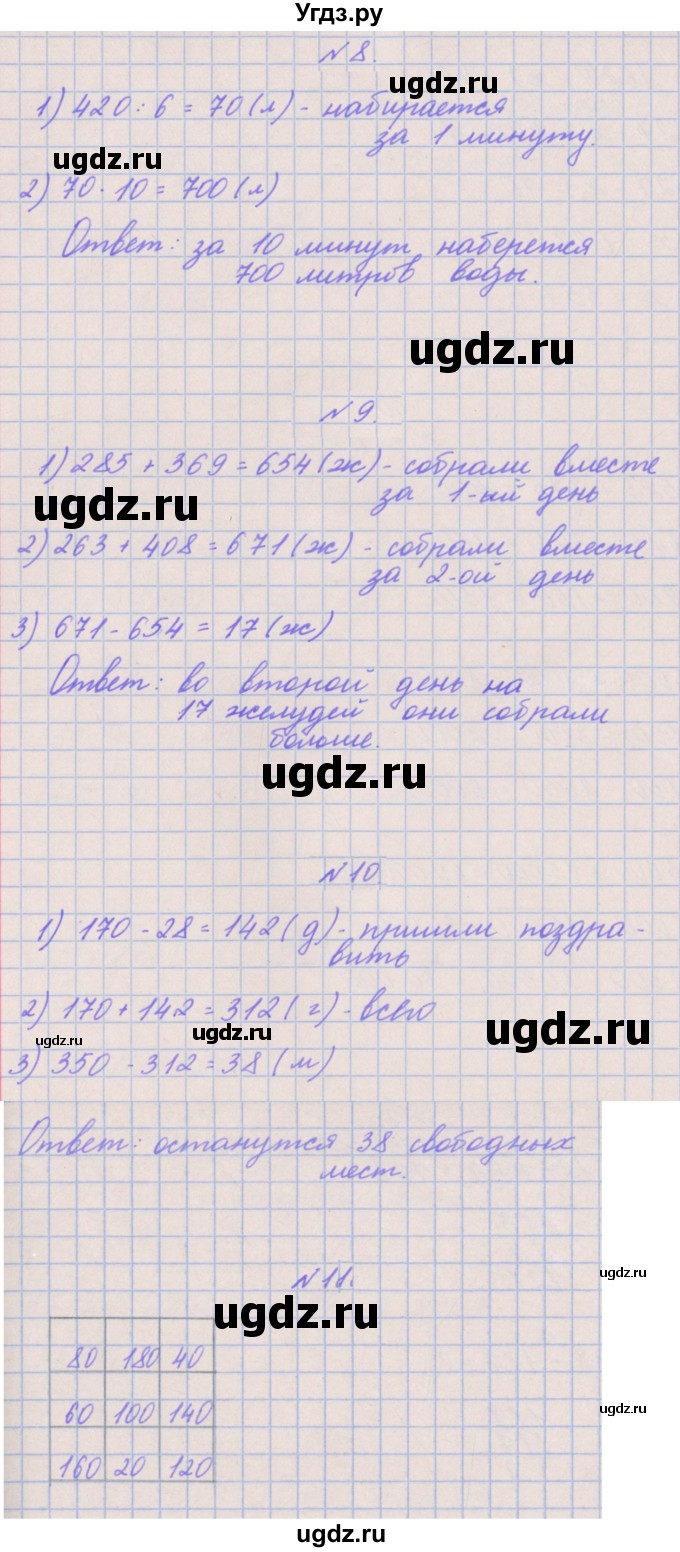 Угдз.ру
№8.
ugdz.ru
1) 420 : 6 = 70 (л) - набирается
за 1 минуту.
ugdz.ru
2) 70 · 10 = 700 (л)
Ответ: за 10 минут наберется
700 литров воды.
ugdz.ru
№9.
1) 285 + 369 = 654 (ж) - собрали вместе
за 1-ый день
ugdz.ru
2) 263 + 408 = 671 (ж) - собрали вместе
за 2-ой день
3) 671 - 654 = 17 (ж)
Ответ: во второй день на
17 желудей они собрали
больше.
ugdz.ru
№10
1) 170 - 28 = 142 (д) - пришли поздра-
вить
2) 170 + 142 = 312 (г) - всего
ugdz.ru ugdz.ru ugdz.ru
3) 350 - 312 = 38 (м)
Ответ: останутся 38 свободных
мест.
ugdz.ru
№11.
ugdz.ru
80 180 40
60 100 140
ugdz.ru
160 20 120
ugdz.ru